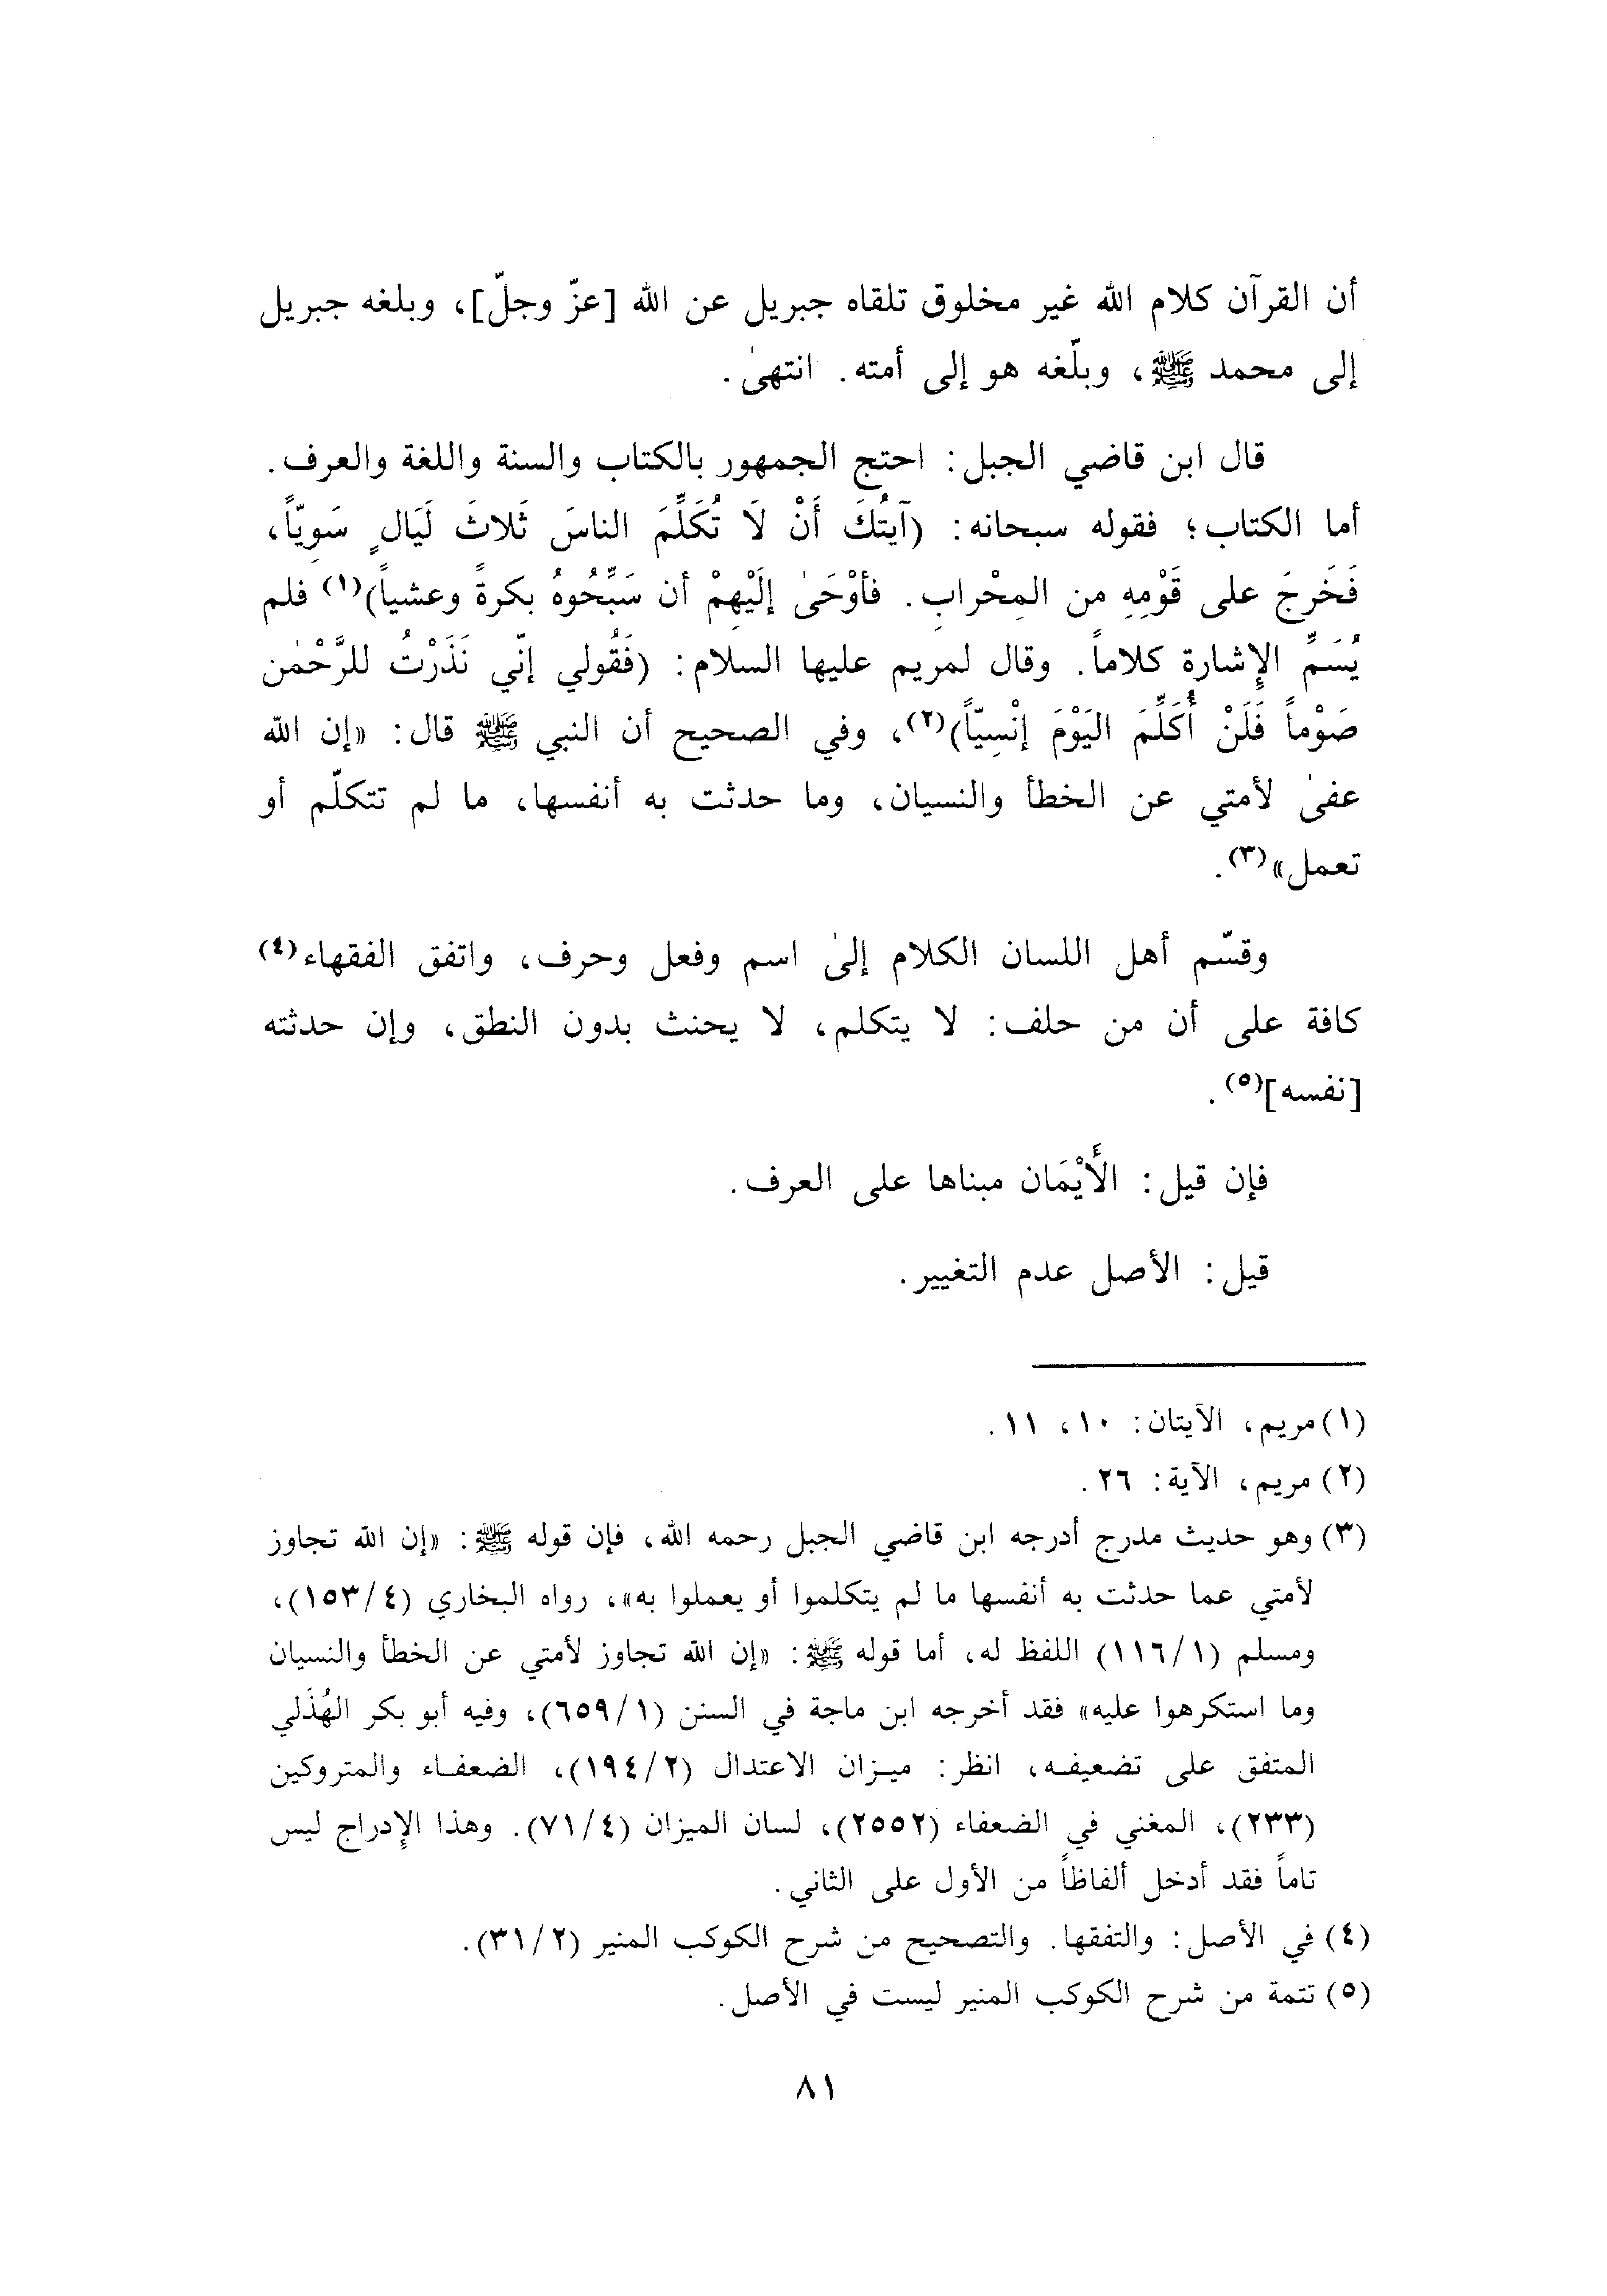 أن القرآن كلام الله غير مخلوق تلقاه جبريل عن الله [عزّ وجلّ]، وبلغه جبريل
إلى محمد ﷺ، وبلّغه هو إلى أمته. انتهىٰ.
قال ابن قاضي الجبل: احتج الجمهور بالكتاب والسنة واللغة والعرف.
أما الكتاب؛ فقوله سبحانه: (آيتُكَ أَنْ لَا تُكَلِّمَ الناسَ ثَلاثَ لَيَالٍ سَوِيّاً،
فَخَرجَ على قَوْمِهِ من المِحْرابِ. فأوْحَىٰ إلَيْهِمْ أن سَبِّحُوهُ بكرةً وعشياً)(١) فلم
يُسَمِّ الإشارة كلاماً. وقال لمريم عليها السلام: (فَقُولي إنّي نَذَرْتُ للرَّحْمٰن
صَوْماً فَلَنْ أُكَلِّمَ اليَوْمَ إنْسِيّاً)(٢)، وفي الصحيح أن النبي ﷺ قال: «إن الله
عفىٰ لأمتي عن الخطأ والنسيان، وما حدثت به أنفسها، ما لم تتكلّم أو
تعمل»(٣).
وقسّم أهل اللسان الكلام إلىٰ اسم وفعل وحرف، واتفق الفقهاء(٤)
كافة على أن من حلف: لا يتكلم، لا يحنث بدون النطق، وإن حدثته
[نفسه](٥).
فإن قيل: الأَيْمَان مبناها على العرف.
قيل: الأصل عدم التغيير.
(١) مريم، الآيتان: ١٠، ١١.
(٢) مريم، الآية: ٢٦.
(٣) وهو حديث مدرج أدرجه ابن قاضي الجبل رحمه الله، فإن قوله ﷺ: «إن الله تجاوز
لأمتي عما حدثت به أنفسها ما لم يتكلموا أو يعملوا به»، رواه البخاري (٤/١٥٣)،
ومسلم (١/١١٦) اللفظ له، أما قوله ﷺ: «إن الله تجاوز لأمتي عن الخطأ والنسيان
وما استكرهوا عليه» فقد أخرجه ابن ماجة في السنن (١/٦٥٩)، وفيه أبو بكر الهُذَلي
المتفق على تضعيفه، انظر: ميزان الاعتدال (٢/١٩٤)، الضعفاء والمتروكين
(٢٣٣)، المغني في الضعفاء (٢٥٥٢)، لسان الميزان (٤/٧١). وهذا الإدراج ليس
تاماً فقد أدخل ألفاظاً من الأول على الثاني.
(٤) في الأصل: والتفقها. والتصحيح من شرح الكوكب المنير (٢/٣١).
(٥) تتمة من شرح الكوكب المنير ليست في الأصل.
٨١